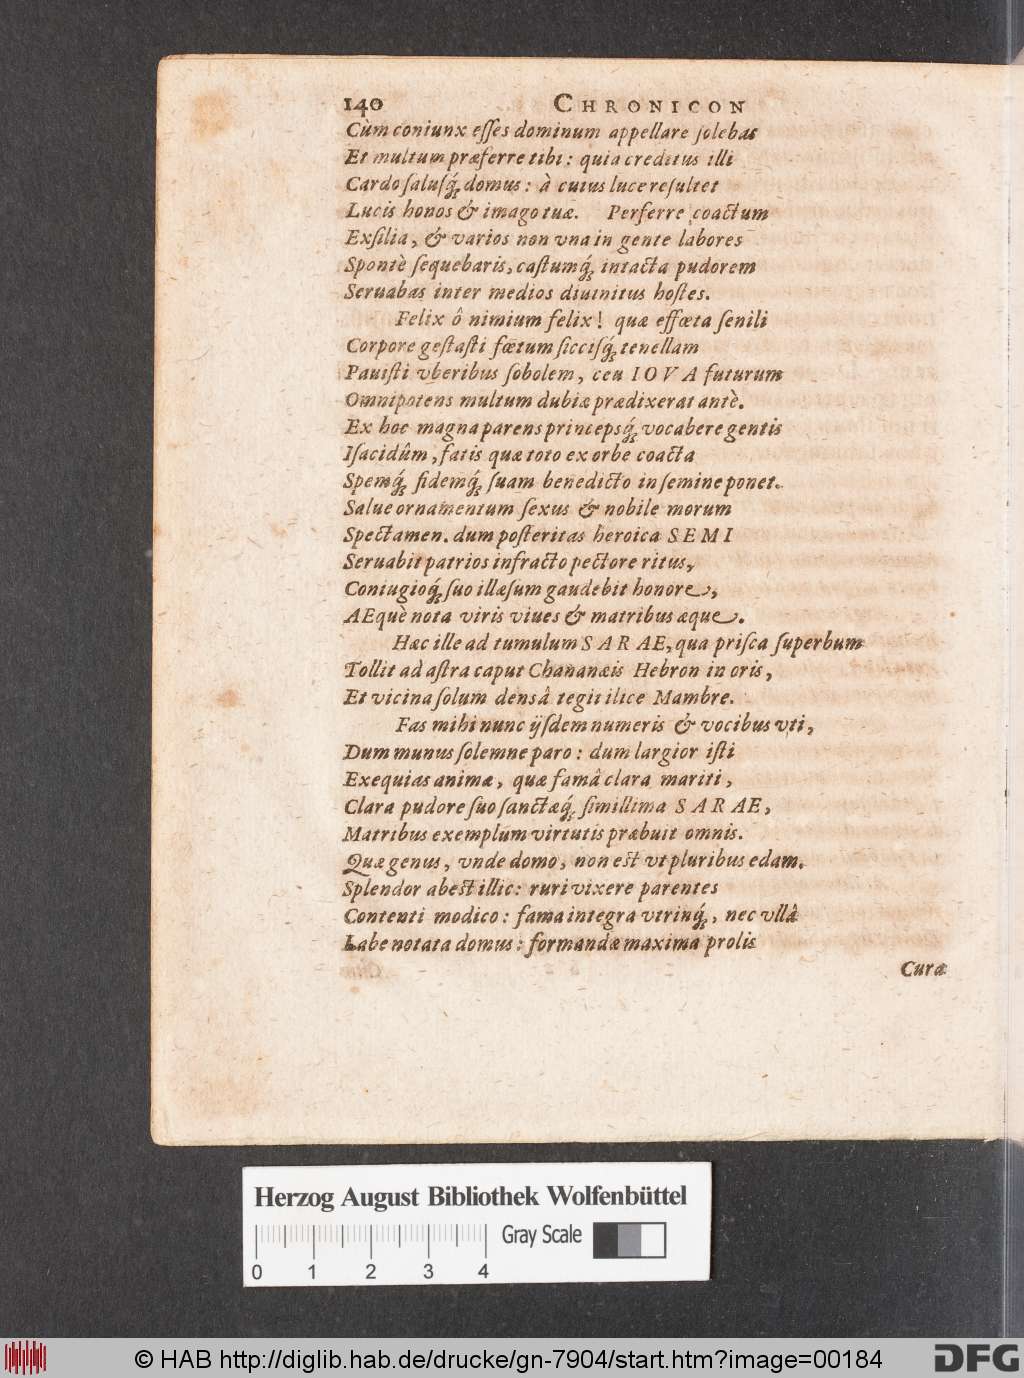 140 CHRONICON
Cùm coniunx esses dominum appellare solebas
Et multum præferre tibi: quia creditus illi
Cardo salusq́; domus: à cuius luce resultet
Lucis honos & imago tuæ. Perferre coactum
Exsilia, & varios non vna in gente labores
Spontè sequebaris, castumq́; intacta pudorem
Seruabas inter medios diuinitus hostes.
Felix ô nimium felix! quæ effœta senili
Corpore gestasti fœtum siccisq́; tenellam
Pauisti vberibus sobolem, ceu IOVA futurum
Omnipotens multum dubiæ prædixerat antè.
Ex hoc magna parens princepsq́; vocabere gentis
Isacidûm, fatis quæ toto ex orbe coacta
Spemq́; fidemq́; suam benedicto in semine ponet.
Salue ornamentum sexus & nobile morum
Spectamen. dum posteritas heroica SEMI
Seruabit patrios infracto pectore ritus,
Coniugioq́; suo illæsum gaudebit honore,
AEquè nota viris viues & matribus æque.
Hæc ille ad tumulum SARAE, qua prisca superbum
Tollit ad astra caput Chananæis Hebron in oris,
Et vicina solum densâ tegit ilice Mambre.
Fas mihi nunc ijsdem numeris & vocibus vti,
Dum munus solemne paro: dum largior isti
Exequias animæ, quæ famâ clara mariti,
Clara pudore suo sanctæq́; simillima SARAE,
Matribus exemplum virtutis præbuit omnis.
Quæ genus, vnde domo, non est vt pluribus edam.
Splendor abest illic: ruri vixere parentes
Contenti modico: fama integra vtrinq́;, nec vllâ
Labe notata domus: formandæ maxima prolis
Curæ
Herzog August Bibliothek Wolfenbüttel
Gray Scale
0 1 2 3 4
© HAB http://diglib.hab.de/drucke/gn-7904/start.htm?image=00184
DFG